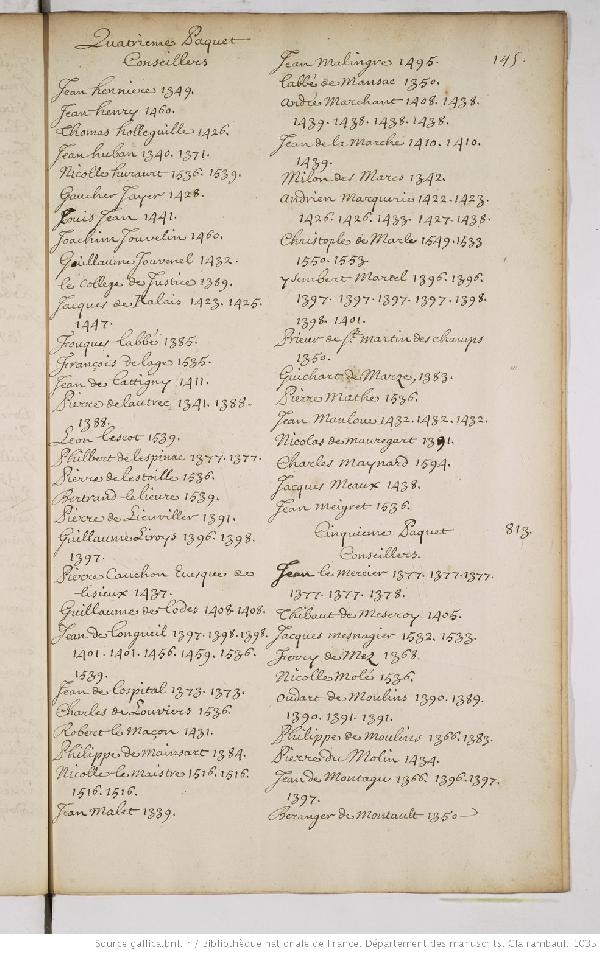 Quatrieme Paquet
Conseillers
Jean herniere 1349.
Jean henry 1460.
Thomas holleguille 1426.
Jean huban 1340. 1371.
Nicolle hurault 1536. 1539.
Gaucher Jayer 1428.
Louis Jean 1441.
Joachim Jouvelin 1460.
Guillaume Jouvenel 1432.
le College de Justice 1389.
Jacques de Kalais 1423. 1425.
1447.
Fouques l'abbé 1385.
François de lage 1535.
Jean de lattigny 1411.
Pierre de lautrec 1341. 1388.
1388.
Leon lescot 1539.
Philbert de lespinac 1377. 1377.
Pierre de lestoille 1536.
Bertrand le lieure 1539.
Pierre de Lieuviller 1391.
Guillaume Liroys 1396. 1398.
1397.
Pierre Cauchon Evesque de
lisieux 1437.
Guillaume des lodes 1408. 1408.
Jean de longueil 1397. 1398. 1398.
1401. 1401. 1456. 1459. 1536.
1539.
Jean de lospital 1373. 1373.
Charles de Louviers 1536.
Robert le Maçon 1431.
Philippe de Mainsart 1384.
Nicolle le maistre 1516. 1516.
1516. 1516.
Jean Malet 1339.
Jean Malingre 1495.
145.
l'abbé de Mansac 1350.
André Marchant 1408. 1438.
1439. 1438. 1438. 1438.
Jean de la Marche 1410. 1410.
1439.
Milon des Mares 1342.
Andrien Marguerie 1422. 1423.
1426. 1426. 1433. 1427. 1438.
Christople de Marle 1549. 1533
1550. 1553.
ysembert Martel 1396. 1396.
1397. 1397. 1397. 1397. 1398.
1398. 1401.
Prieur de St. martin des champs
1350.
Guichart de Marze, 1383.
Pierre Mathe 1536.
Jean Mauloue 1432. 1432. 1432.
Nicolas de mauregart 1391.
Charles Maynard 1594.
Jacques Meaux 1438.
Jean meigret 1536.
Cinquieme Paquet
813.
Conseillers.
Jean le Mercier 1377. 1377. 1377.
1377. 1377. 1378.
Thibaut de Meseroy 1405.
Jacques mesnagier 1532. 1533.
Ferry de Mez 1368.
Nicolle Molé 1536.
oudart de Moulins 1390. 1389.
1390. 1391. 1391.
Philippe de moulins 1366. 1383.
Pierre du Molin 1434.
Jean de Montagu 1366. 1396. 1397.
1397.
Beranger de Montault 1350
Source gallica.bnf.fr / Bibliothèque nationale de France. Département des manuscrits. Clairambault 1035